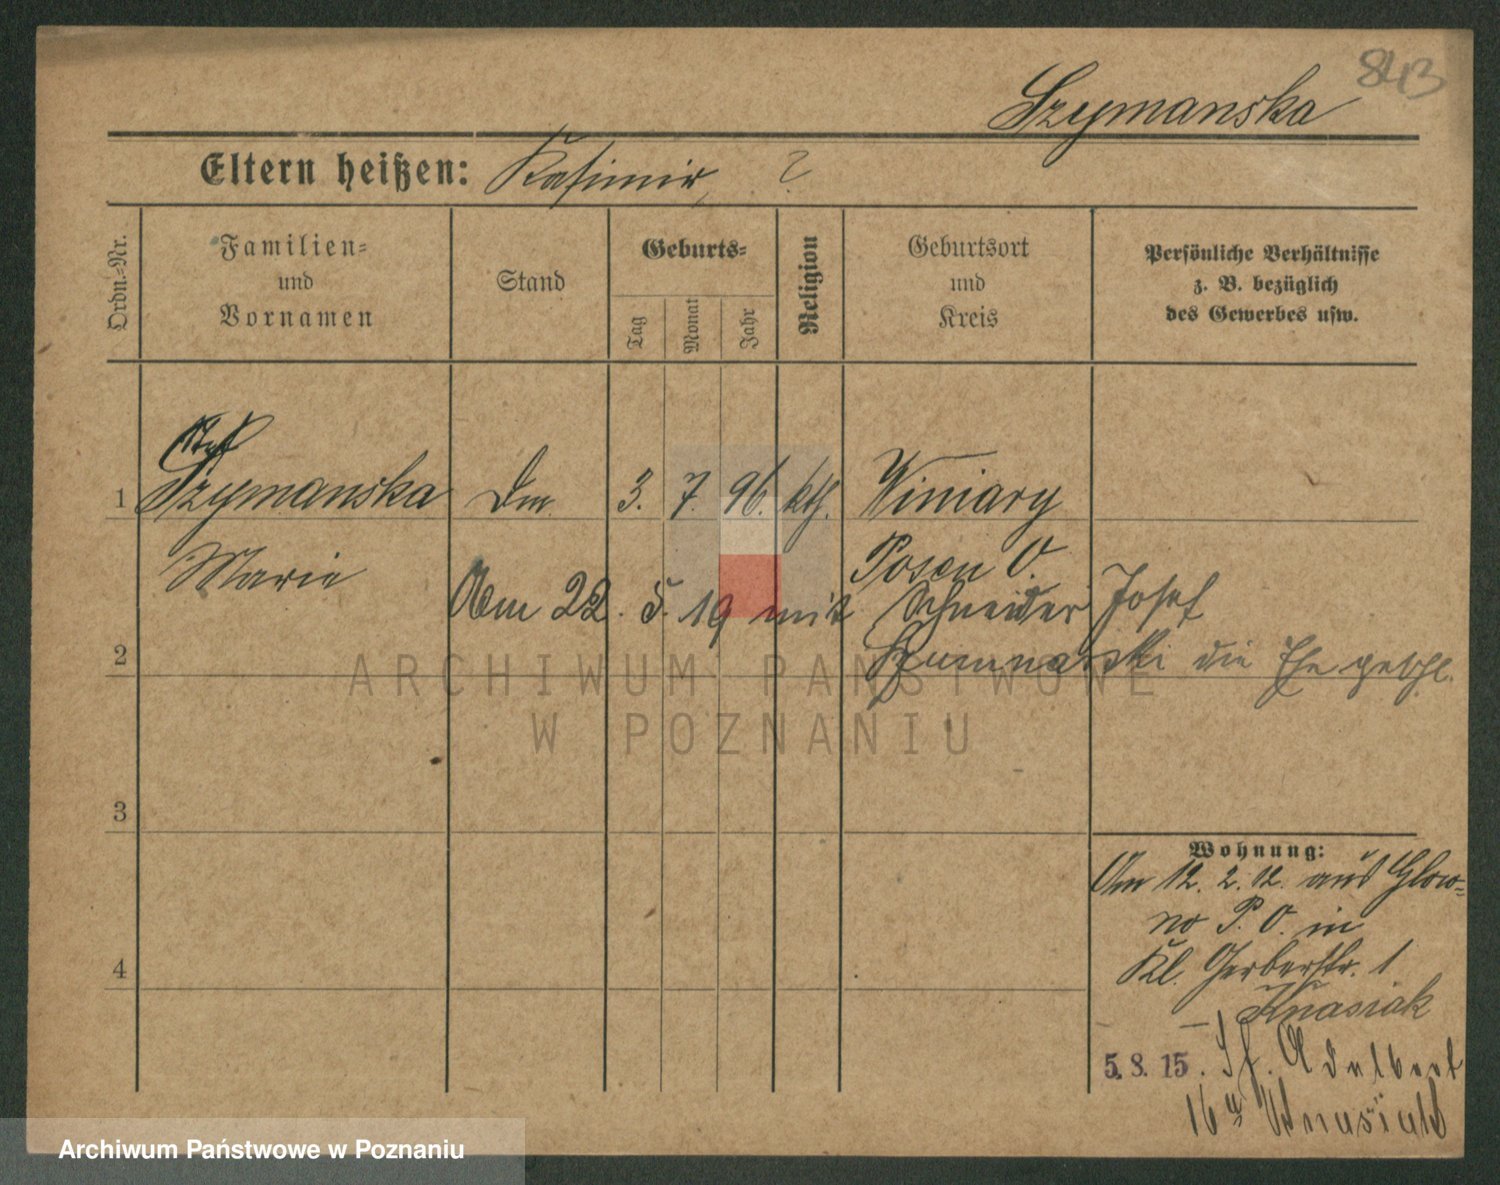 843
Szymanska
Eltern heißen: Kasimir, ?
Ordn.-Nr.
Familien-
und
Vornamen
Stand
Geburts-
Tag
Monat
Jahr
Religion
Geburtsort
und
Kreis
Persönliche Verhältnisse
z. B. bezüglich
des Gewerbes usw.
1 Szymanska Dm. 3. 7. 96. kth. Winiary
Marie Posen O.
Am 22. 5. 19 mit Schneider Josef
die Ehe geschl.
2
ARCHIWUM PAŃSTWOWE
W POZNANIU
3
Wohnung:
Am 12. 2. 12. aus Glow-
no P. O. in
4 Kl. Gerberstr. 1
Knasiak
5. 8. 15. St. Adalbert
16
Archiwum Państwowe w Poznaniu